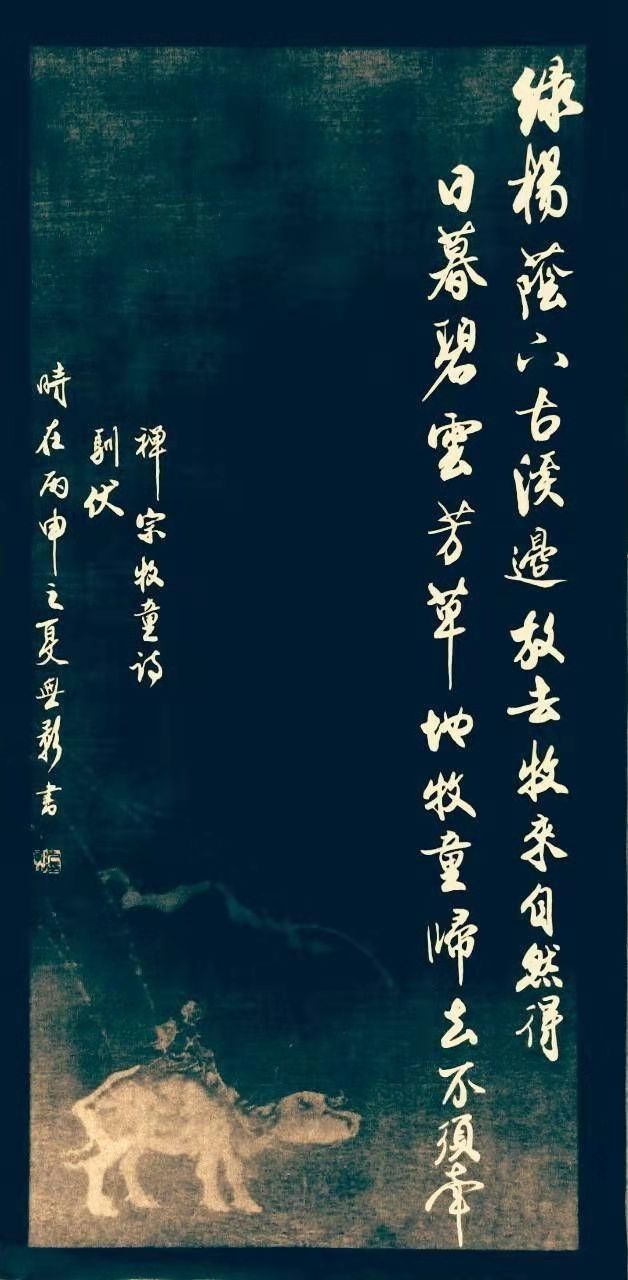 綠楊蔭下古溪邊放去牧來自然得
日暮碧雲芳草地牧童歸去不須牽
禪宗牧童詩
馴伏
時在丙申之夏無影書